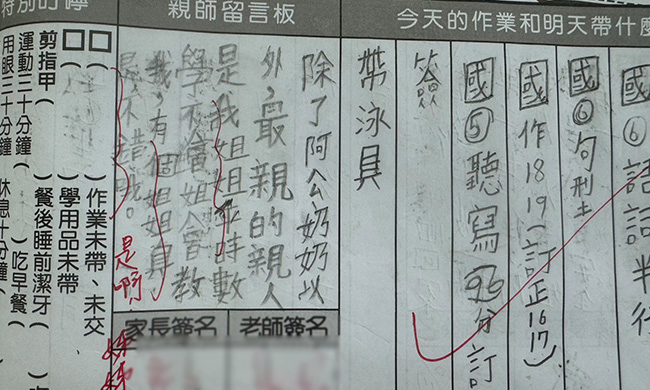 今天的作業和明天帶什麼
親師留言板
國⑥語詞半行
國⑥句型
國作18 19(訂正16 17)
國⑤聽寫96分訂
簽
帶泳具
除了阿公奶奶以
外,最親的親人
是我姐姐
學不會姐會教
我,有個姐姐真
是不錯哦。
是啊
家長簽名
老師簽名
作業未帶、未交
學用品未帶
剪指甲
餐後睡前潔牙
運動三十分鐘
吃早餐
用眼三十分鐘
休息十分鐘